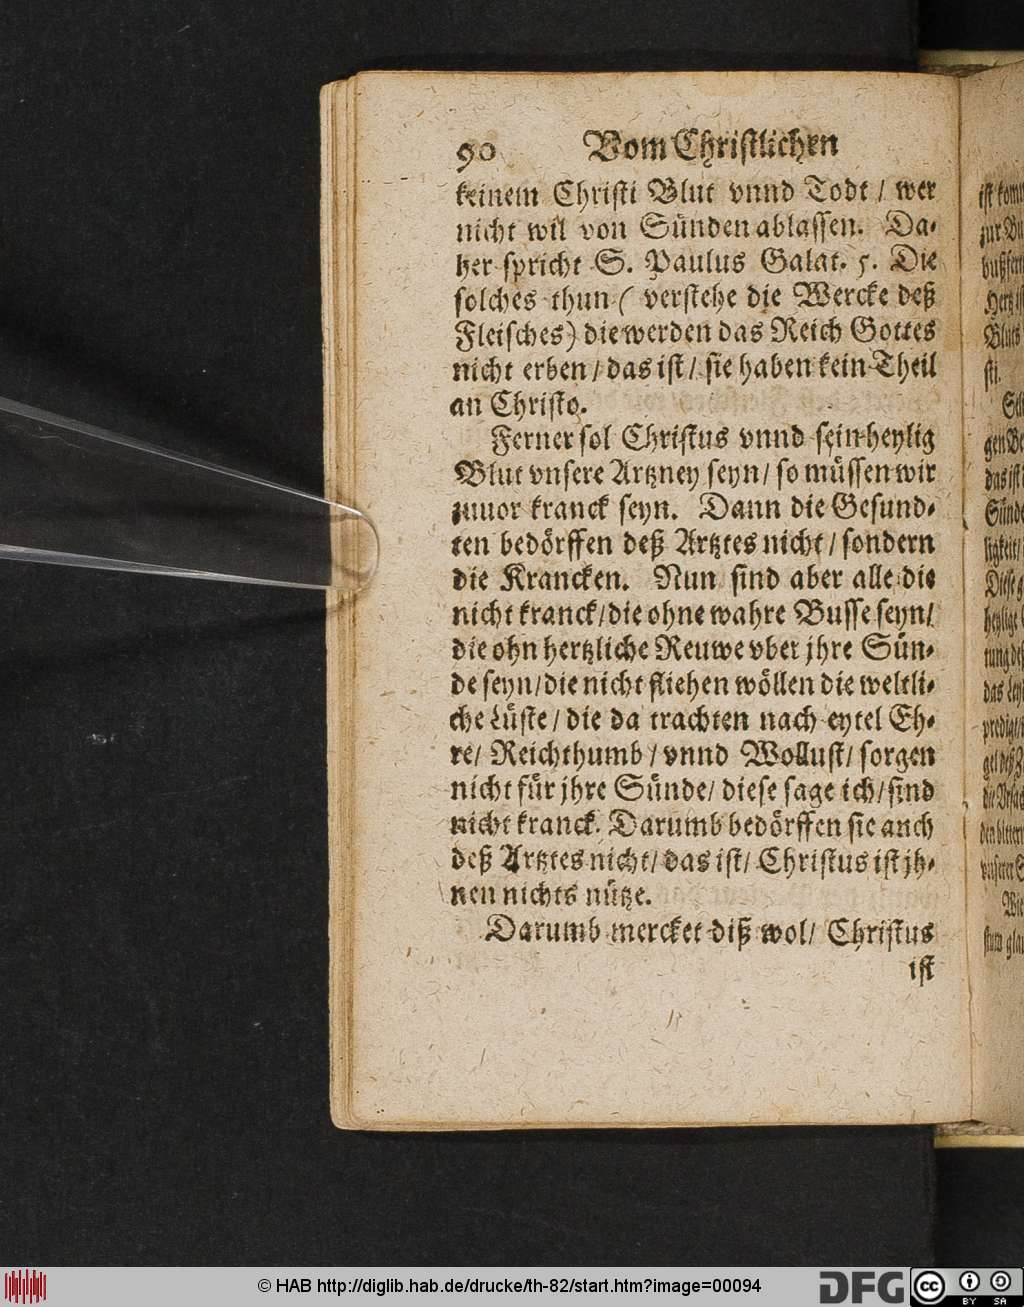 90 Vom Christlichen
keinem Christi Blut vnnd Todt / wer
nicht wil von Sünden ablassen. Da-
her spricht S. Paulus Galat. 5. Die
solches thun ( verstehe die Wercke deß
Fleisches) die werden das Reich Gottes
nicht erben / das ist / sie haben kein Theil
an Christo.
Ferner sol Christus vnnd sein heylig
Blut vnsere Artzney seyn / so müssen wir
zuuor kranck seyn. Dann die Gesund-
ten bedörffen deß Artztes nicht / sondern
die Krancken. Nun sind aber alle die
nicht kranck / die ohne wahre Busse seyn /
die ohn hertzliche Reuwe vber jhre Sün-
de seyn / die nicht fliehen wöllen die weltli-
che Lüste / die da trachten nach eytel Eh-
re / Reichthumb / vnnd Wollust / sorgen
nicht für jhre Sünde / diese sage ich / sind
nicht kranck. Darumb bedörffen sie auch
deß Artztes nicht / das ist / Christus ist jh-
nen nichts nütze.
Darumb mercket diß wol / Christus
ist
© HAB http://diglib.hab.de/drucke/th-82/start.htm?image=00094
DFG
cc BY SA